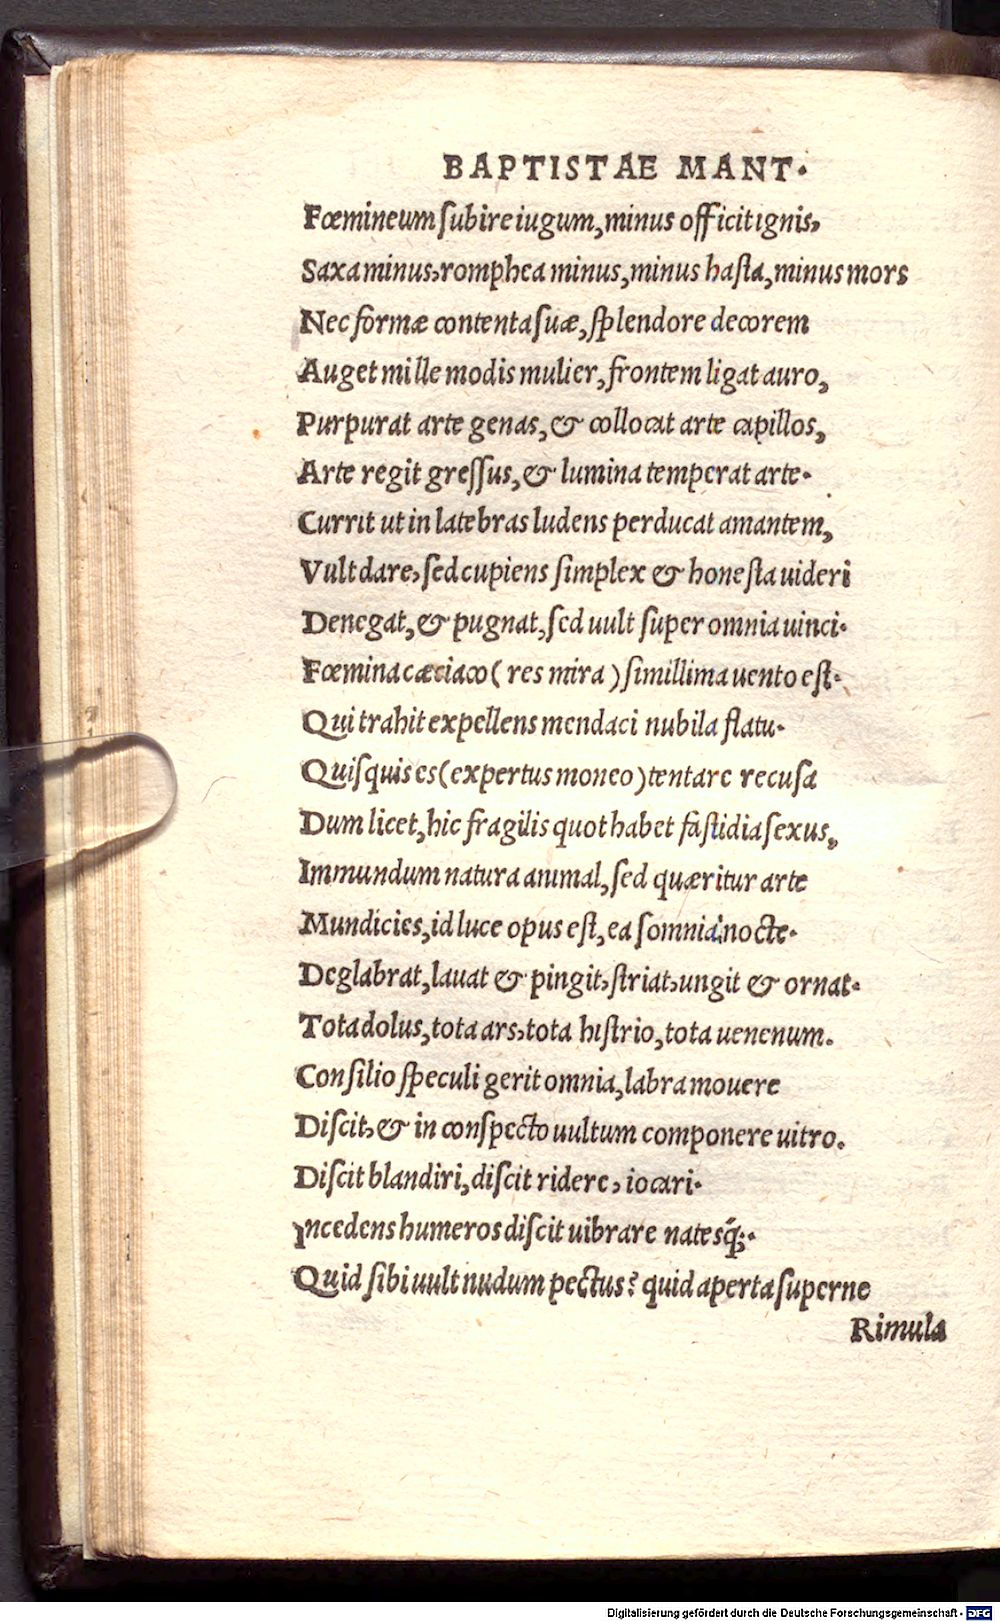 BAPTISTAE MANT.
Fœmineum ſubire iugum, minus officit ignis,
Saxa minus, romphea minus, minus haſta, minus mors
Nec formæ contenta ſuæ, ſplendore decorem
Auget mille modis mulier, frontem ligat auro,
Purpurat arte genas, & collocat arte capillos,
Arte regit greſſus, & lumina temperat arte.
Currit ut in latebras ludens perducat amantem,
Vult dare, ſed cupiens ſimplex & honeſta uideri
Denegat, & pugnat, ſed uult ſuper omnia uinci.
Fœmina cæciaco ( res mira ) ſimillima uento eſt.
Qui trahit expellens mendaci nubila flatu.
Quiſquis es ( expertus moneo ) tentare recuſa
Dum licet, hic fragilis quot habet faſtidia ſexus,
Immundum natura animal, ſed quæritur arte
Mundicies, id luce opus eſt, ea ſomnia nocte.
Deglabrat, lauat & pingit, ſtriat, ungit & ornat.
Tota dolus, tota ars, tota hiſtrio, tota uenenum.
Conſilio ſpeculi gerit omnia, labra mouere
Diſcit, & in conſpecto uultum componere uitro.
Diſcit blandiri, diſcit ridere, iocari.
Incedens humeros diſcit uibrare natesq́;.
Quid ſibi uult nudum pectus? quid aperta ſuperne
Rimula
Digitalisierung gefördert durch die Deutsche Forschungsgemeinschaft - DFG